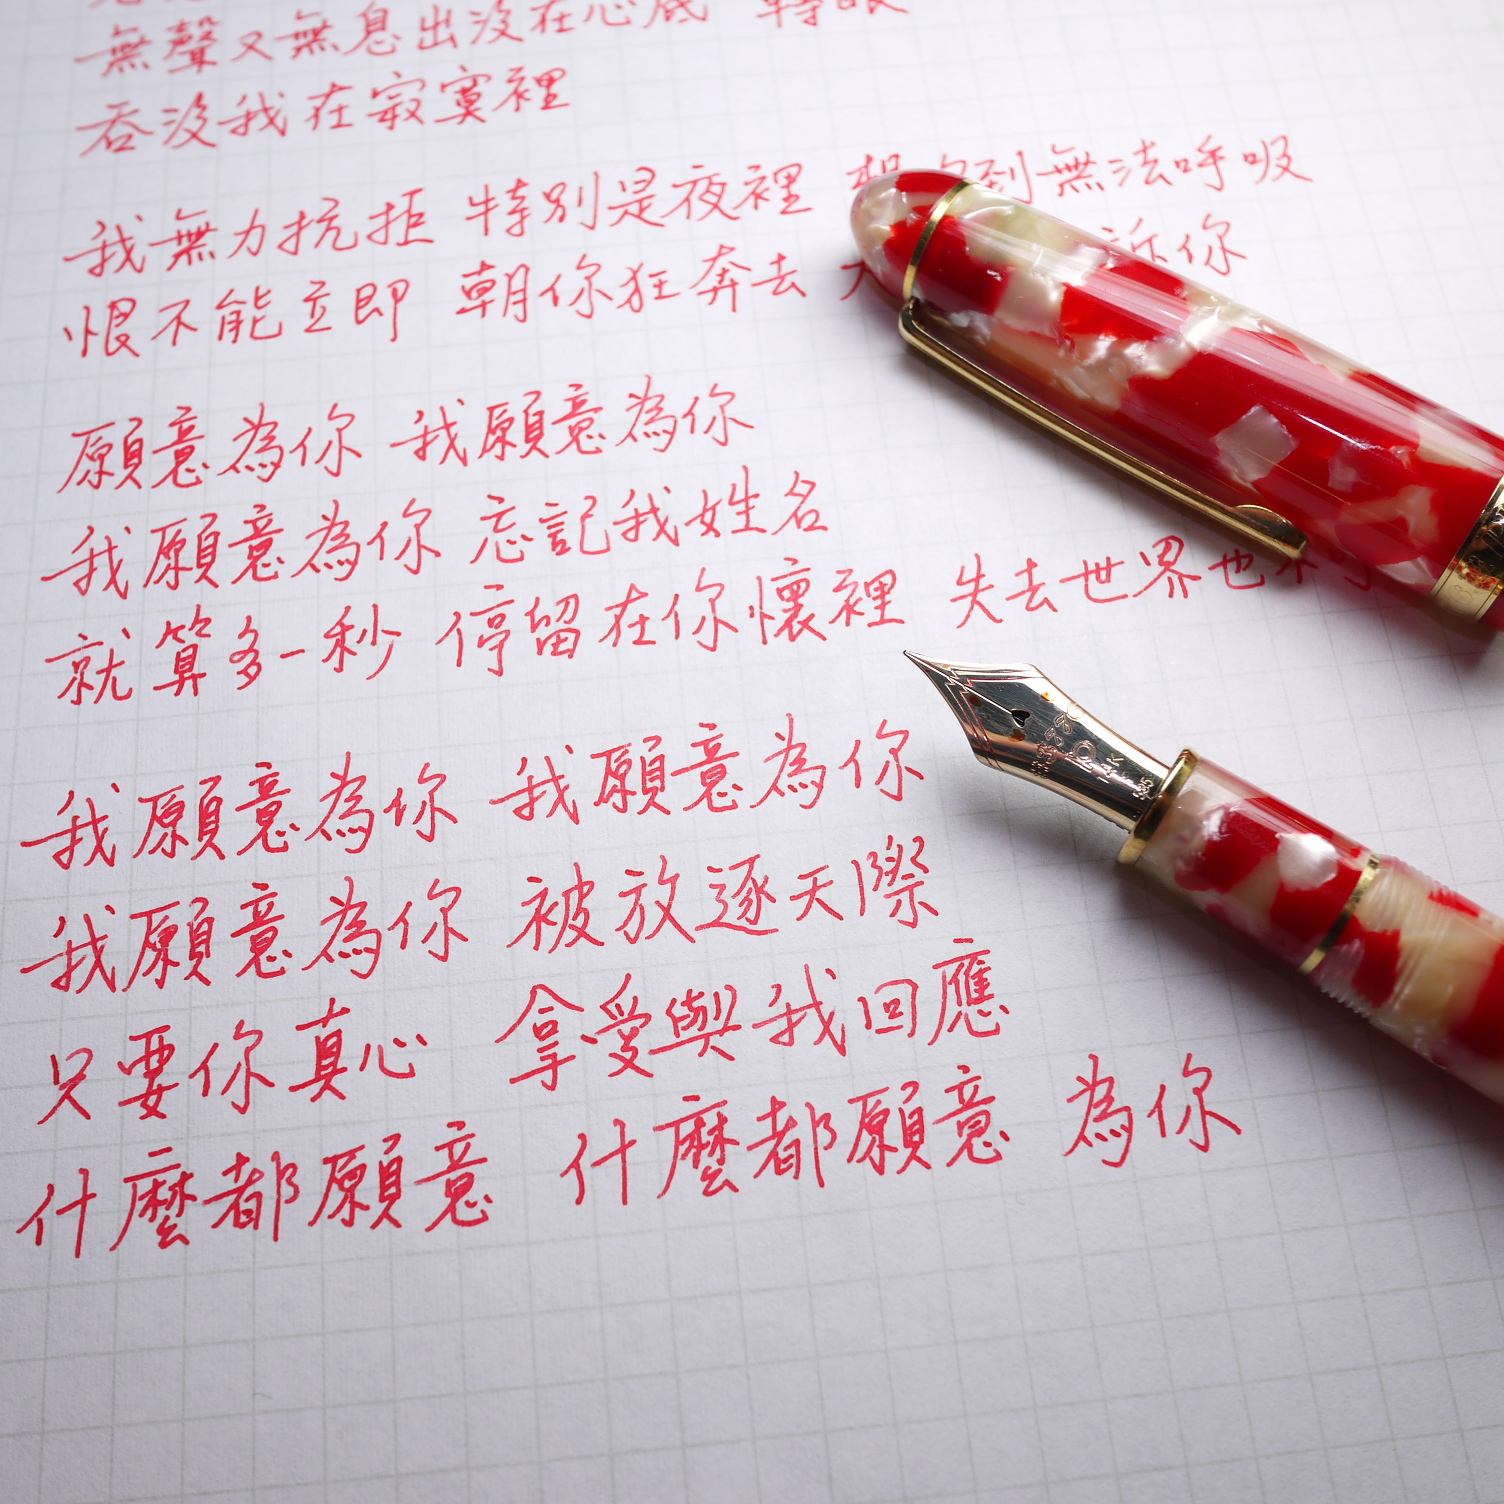 無聲又無息出沒在心底 轉眼
吞沒我在寂寞裡
我無力抗拒 特別是夜裡 想你到無法呼吸
恨不能立即 朝你狂奔去 大 訴你
願意為你 我願意為你
我願意為你 忘記我姓名
就算多一秒 停留在你懷裡 失去世界也不可
我願意為你 我願意為你
我願意為你 被放逐天際
只要你真心 拿愛與我回應
什麼都願意 什麼都願意 為你